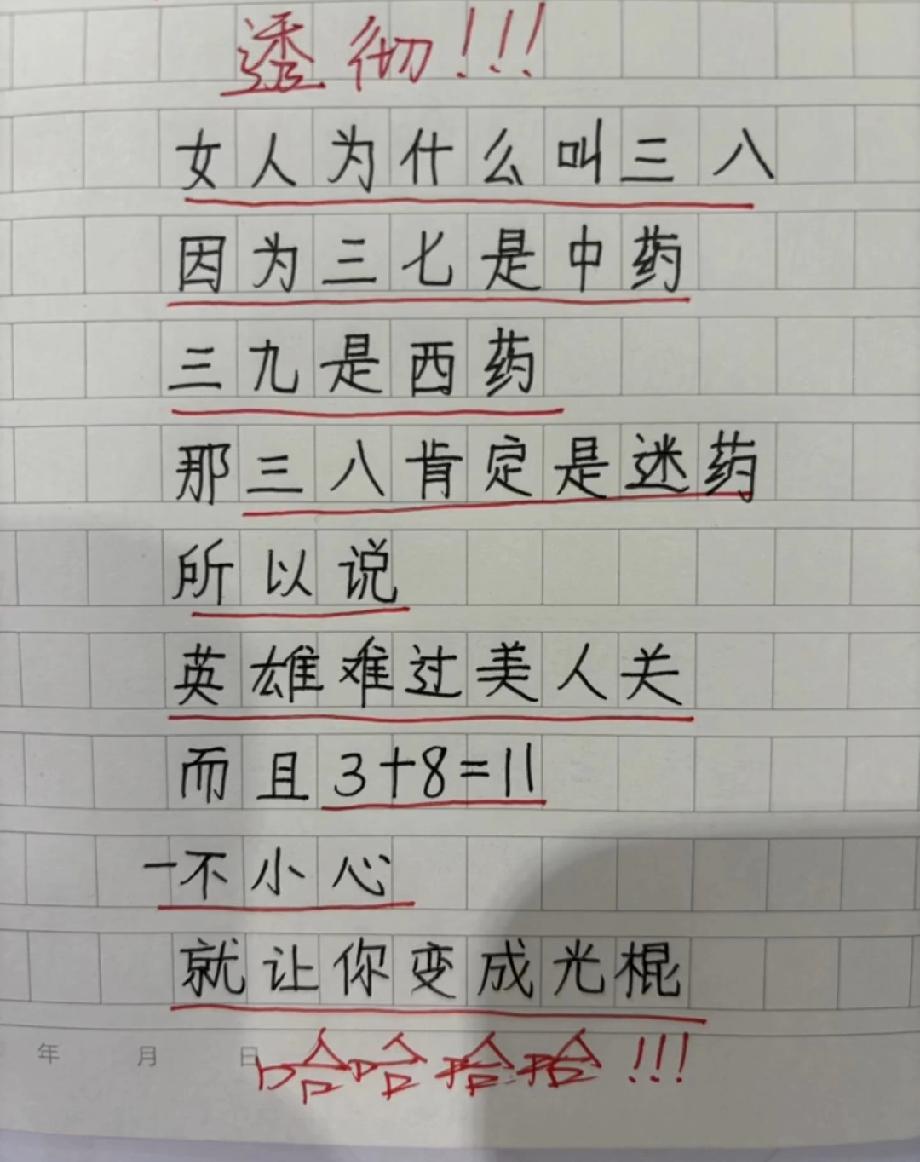 透彻!!!
女人为什么叫三八
因为三七是中药
三九是西药
那三八肯定是迷药
所以说
英雄难过美人关
而且3+8=11
一不小心
就让你变成光棍
年 月 日
哈哈拾拾!!!